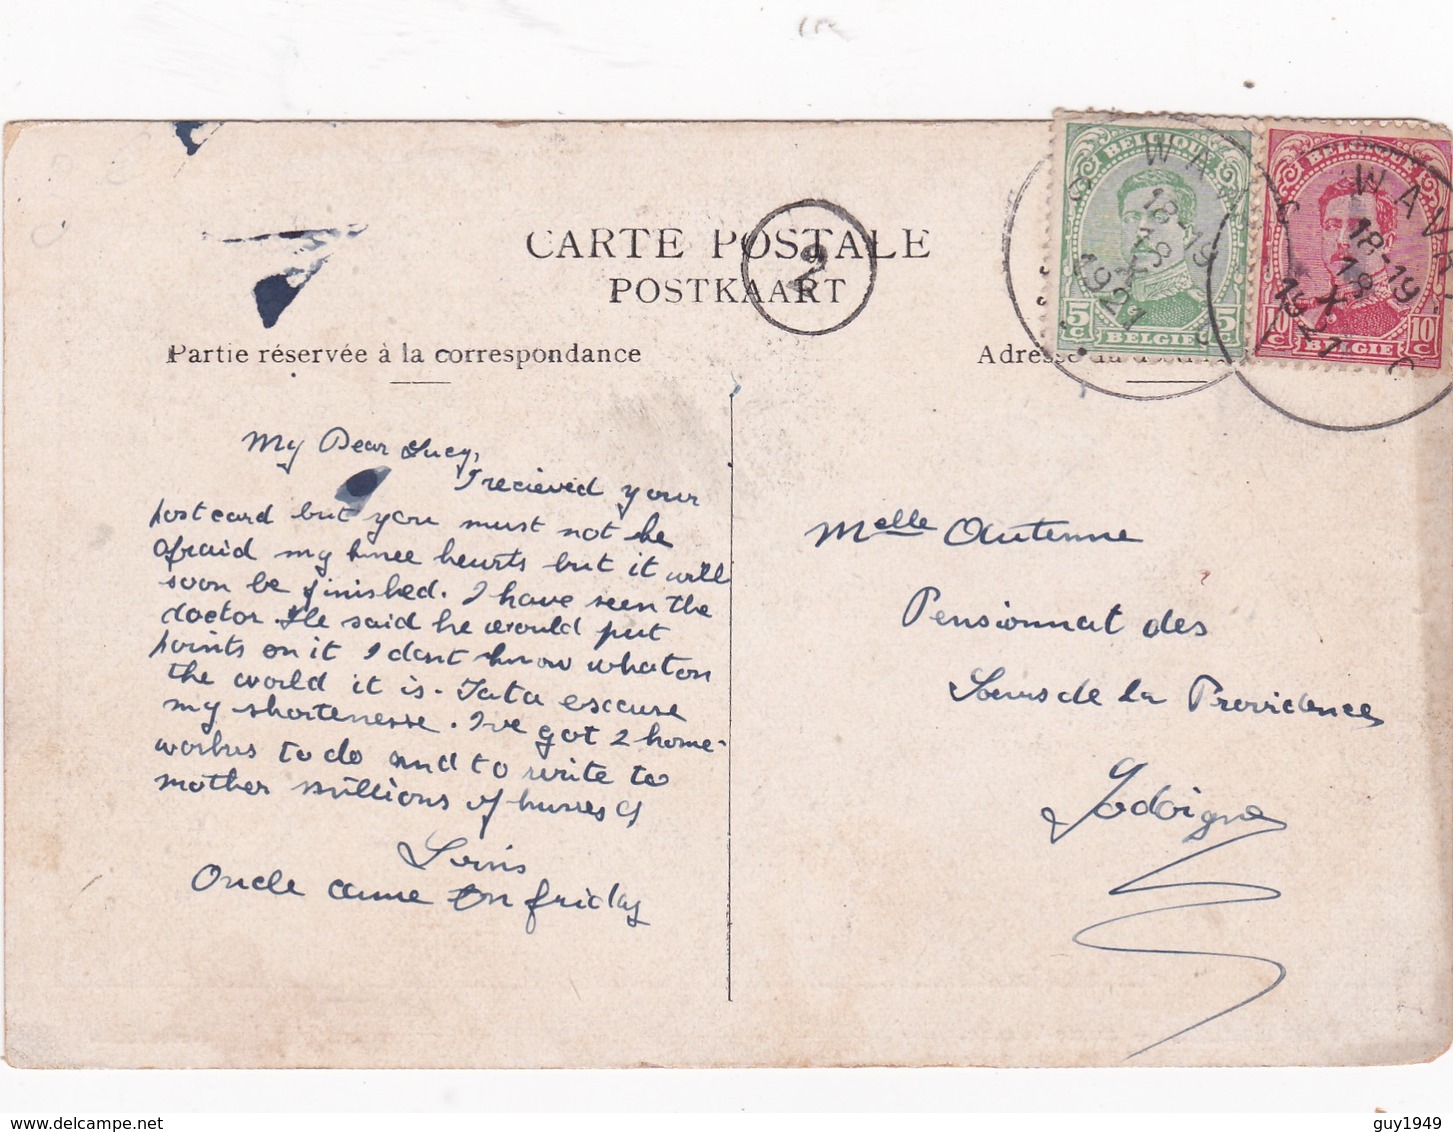 CARTE POSTALE
POSTKAART
Partie réservée à la correspondance
Adresse du
2
BELGIQUE
5c 5c
BELGIE
BELGIQUE
10c 10c
BELGIE
WAV
18-19
18
X
1921
WAVR
18-19
18
X
1921
My Dear Lucy,
I recieved your
postcard but you must not be
afraid my knee heurts but it will
soon be finished. I have seen the
doctor He said he would put
points on it I dont know what on
the world it is. Tata escuse
my shortenesse. I've got 2 home-
workes to do and to write to
mother millions of
Louis
Oncle came on friday
Melle Autenne
Pensionnat des
Sœurs de la Providence
Jodoigne
delcampe.net
guy1949